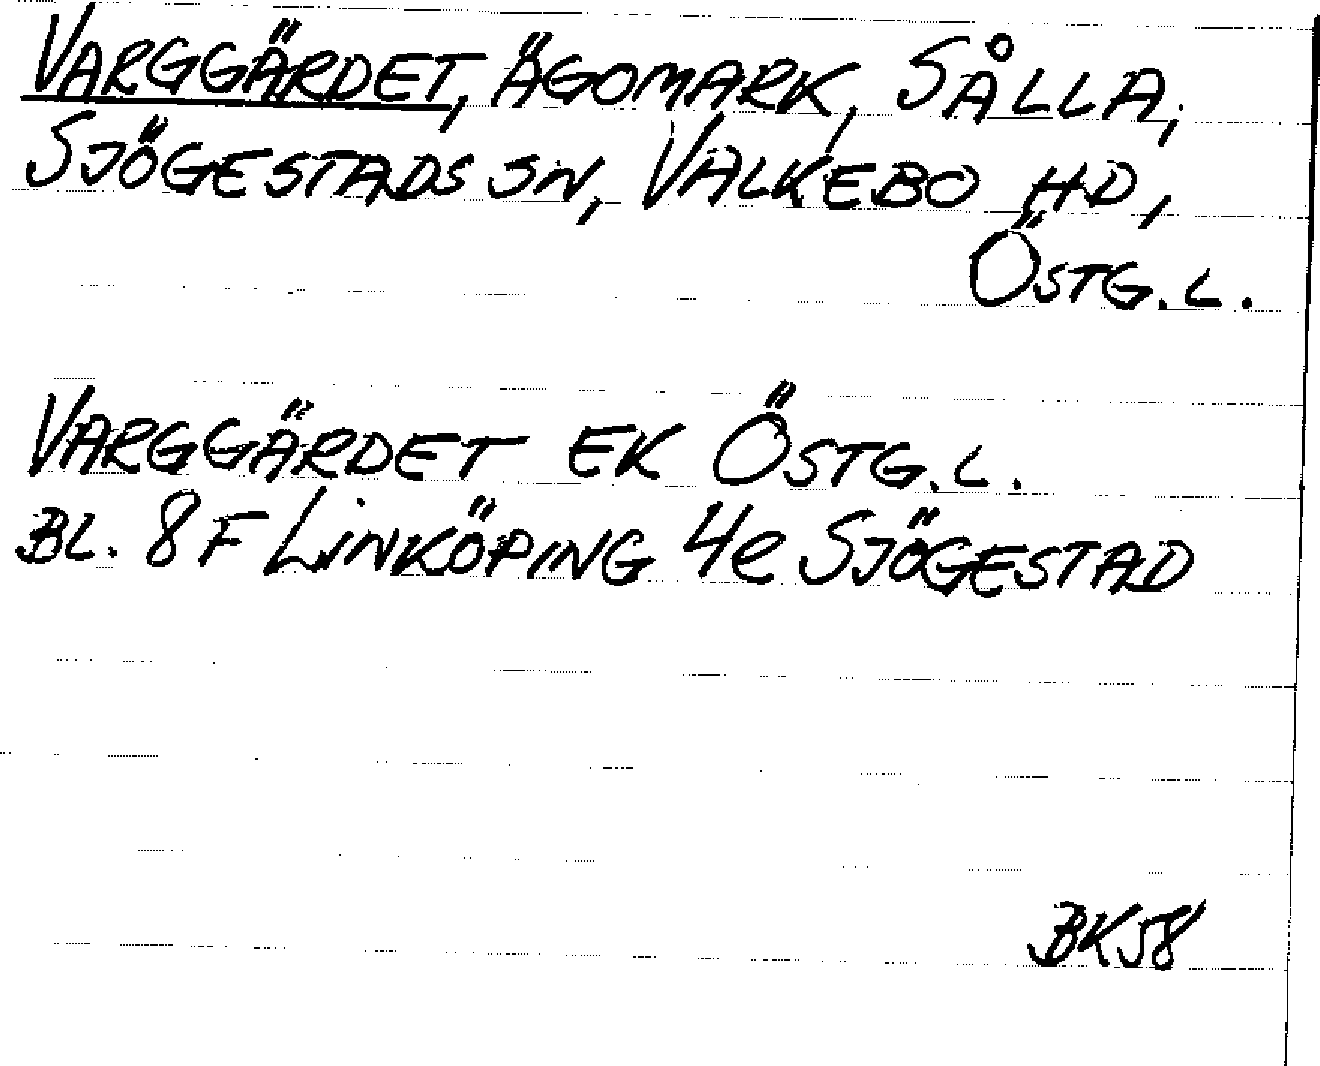 VARGGÄRDET, ÄGOMARK, SÅLLA,
SJÖGESTADS SN, VALKEBO HD,
ÖSTG. L.
VARGGÄRDET EK ÖSTG. L.
BL. 8F LINKÖPING 4e SJÖGESTAD
BK58